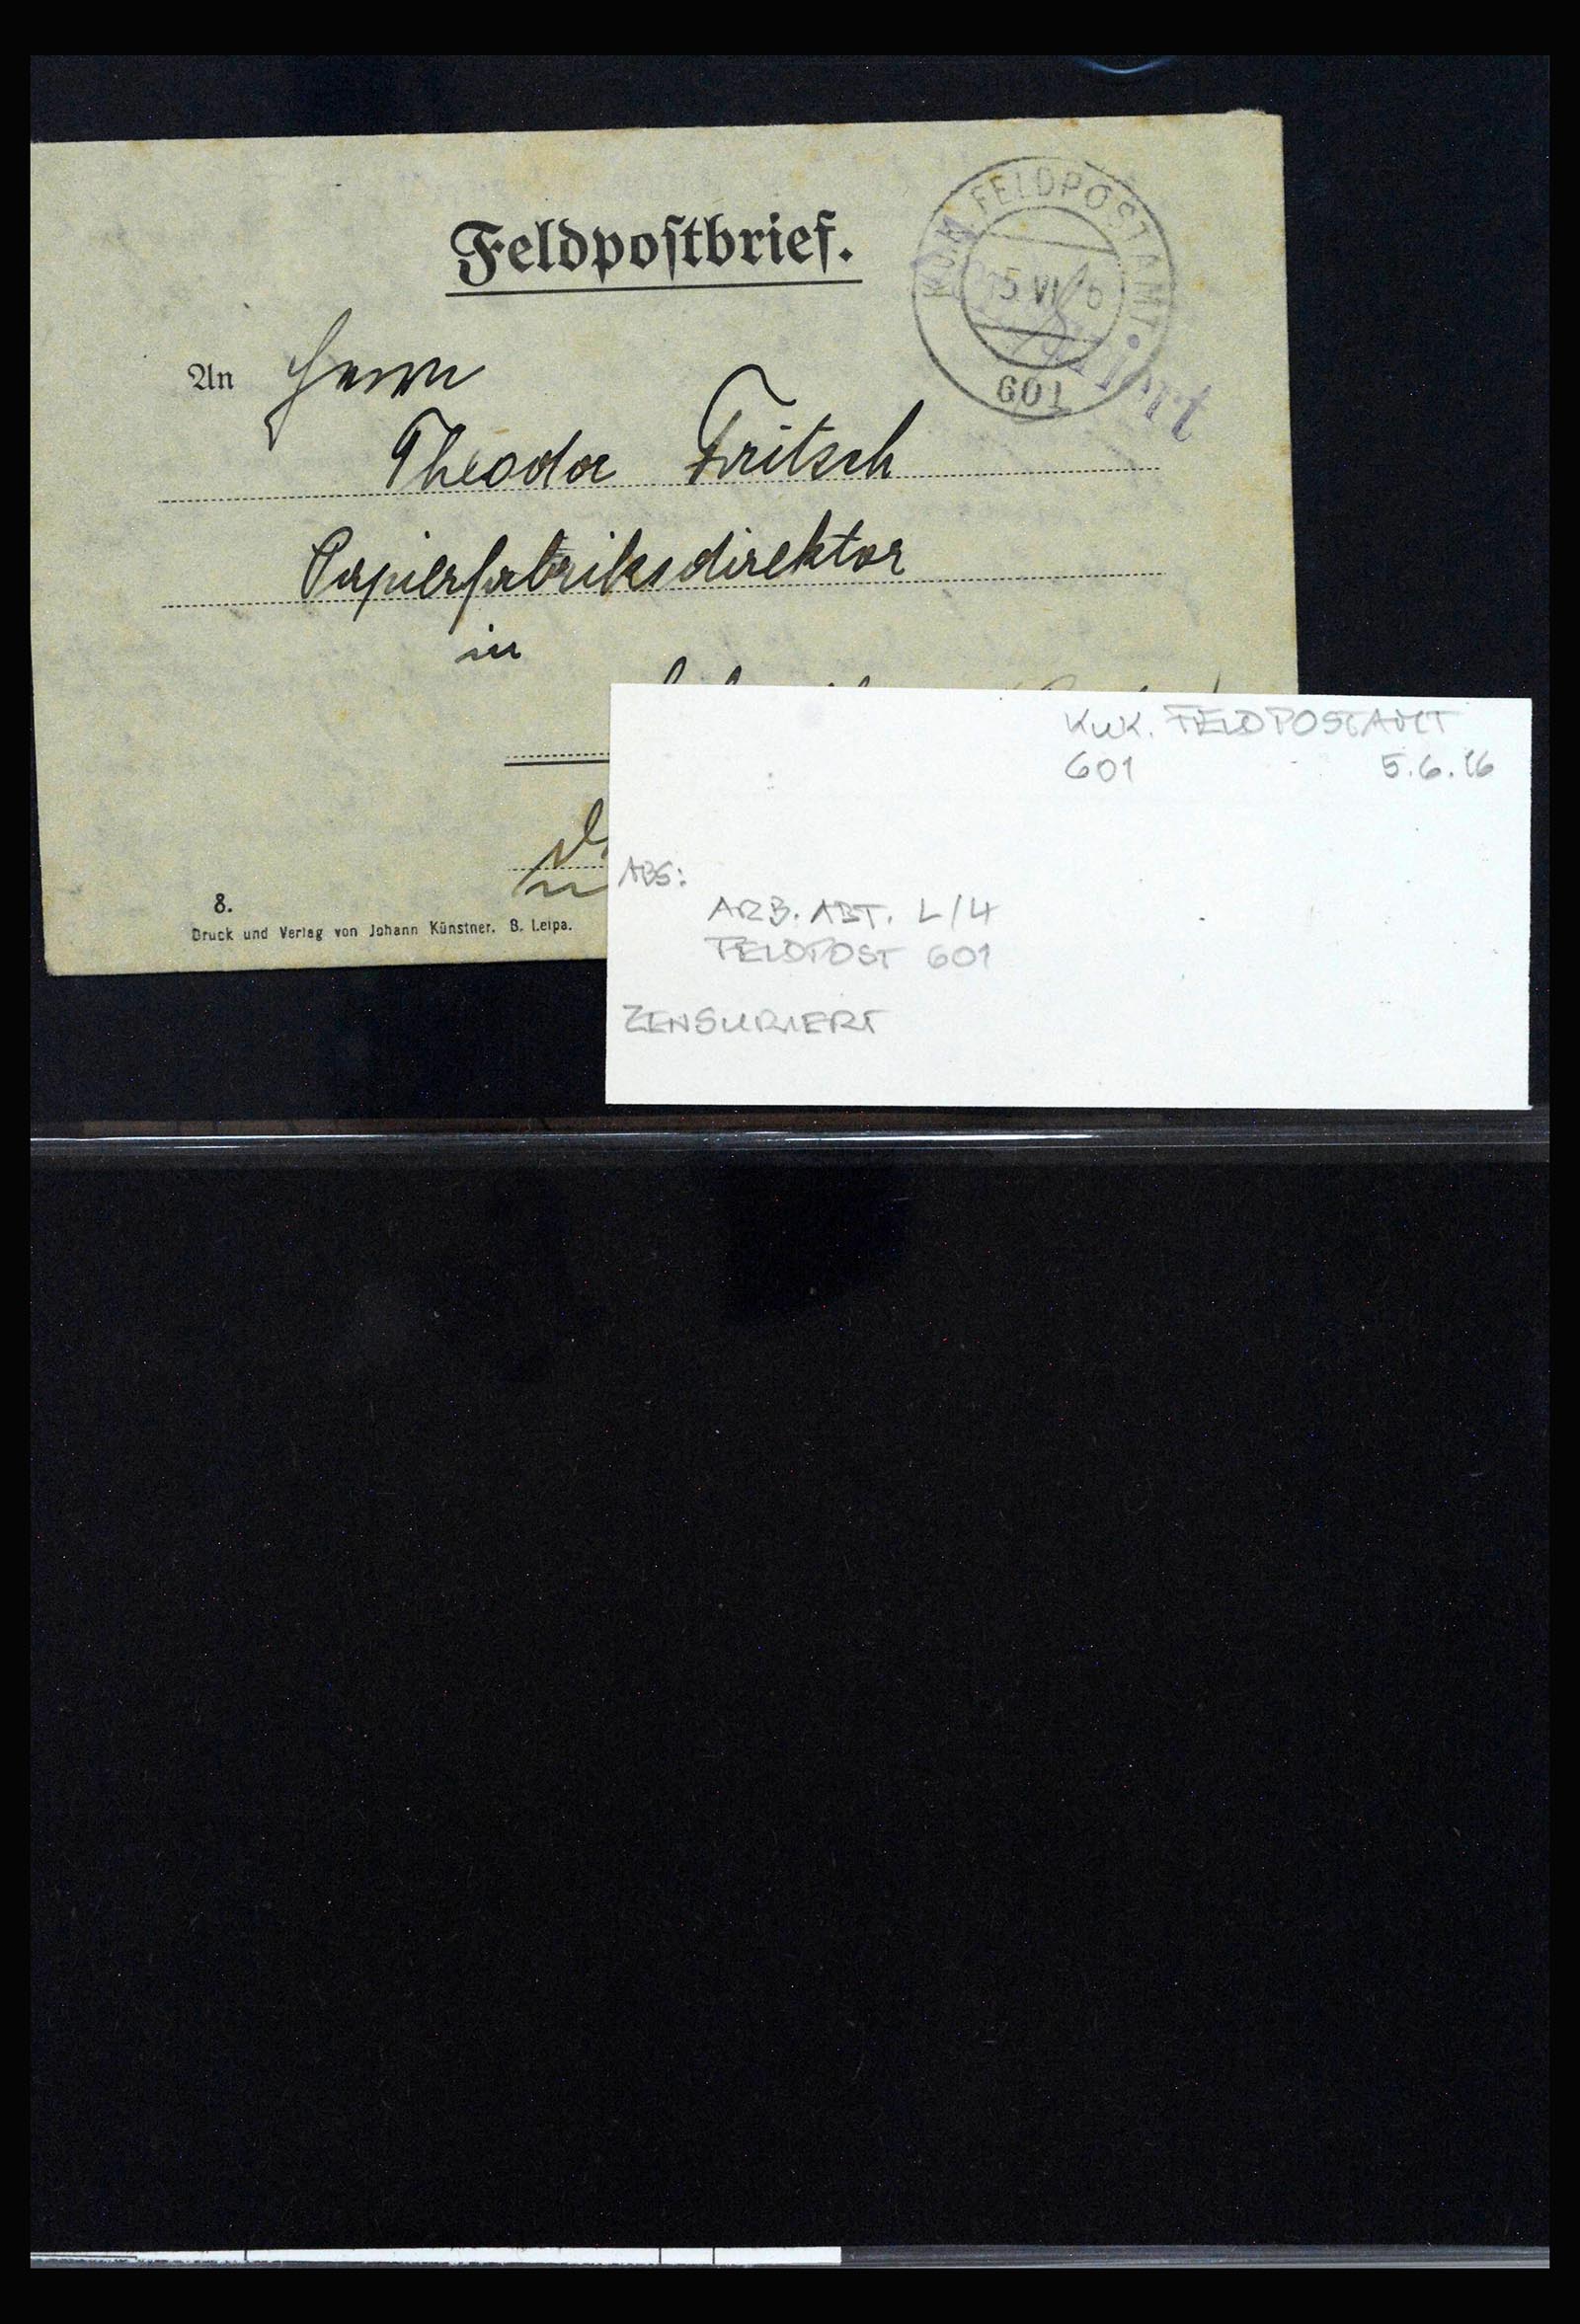 Feldpostbrief.
K.U.K. FELDPOSTAMT
5 VI 16
601
An Herrn
Theodor Fritsch
Papierfabriksdirektor
in
8.
Druck und Verlag von Johann Künstner. B. Leipa.
KuK. FELDPOSTAMT
601 5.6.16
ABS:
ARB. ABT. L/4
FELDPOST 601
ZENSURIERT